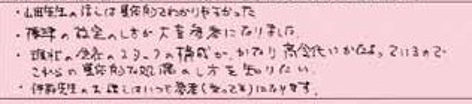 ・山田先生の話しは具体的でわかりやすかった
・標準の設定のし方が大変参考になりました
・現状の会社のスタッフの構成が、かなり高令化しかたよっているので
これからの具体的な処遇のし方を知りたい。
・伊藤先生のお話しはいつも参考(とっても)になります。